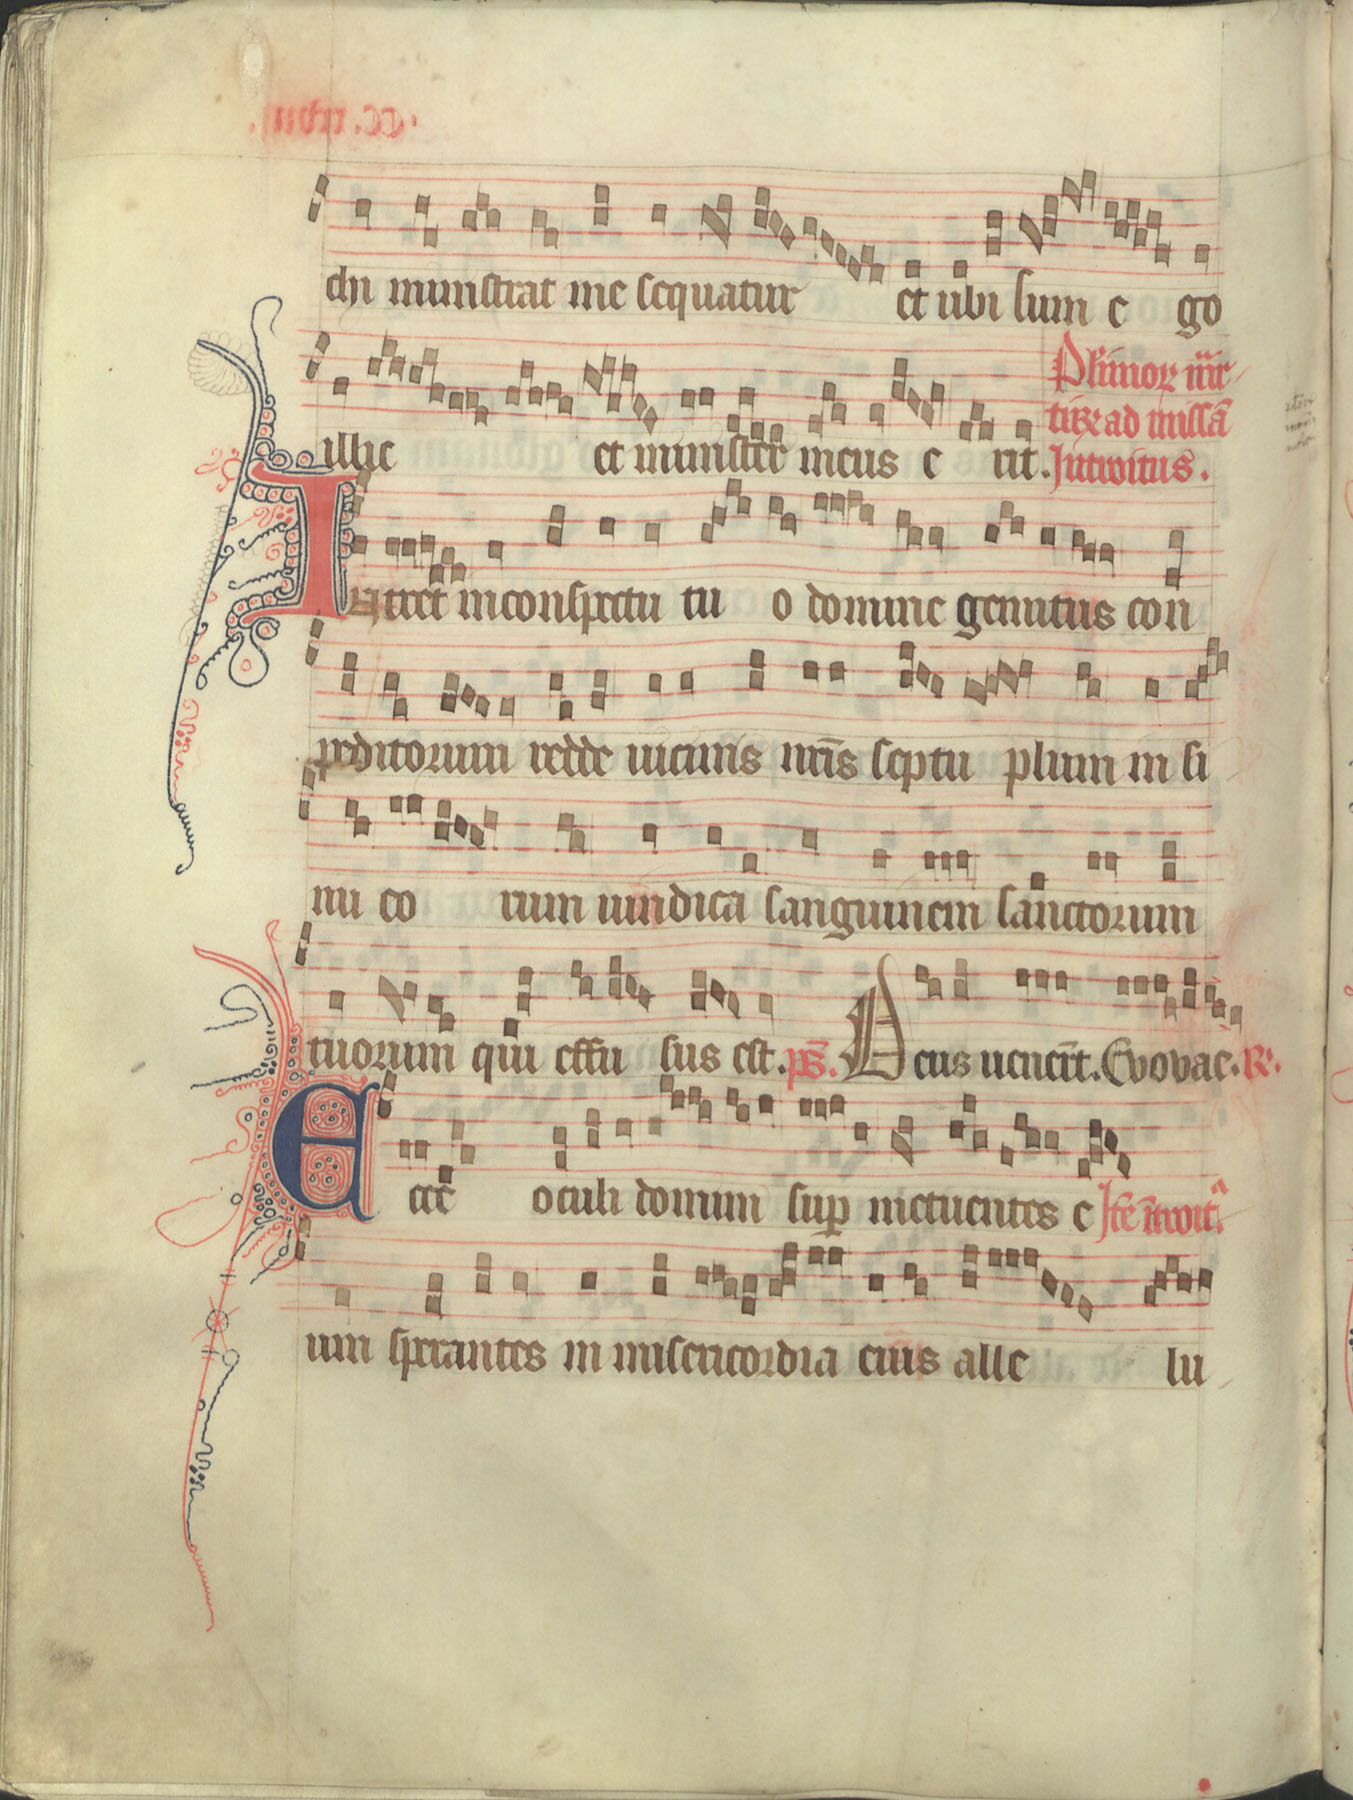 chi ministrat me sequatur et ubi sum e go
illic et minister meus e rit.
Plimor mr
tirꝝ ad missā
Introitus.
Intret in conspectu tu o domine gemitus con
peditorum redde uicinis nr̄is septu plum in si
nu eo rum uindica sanguinem sanctorum
tuorum qui effu sus est. ps̄. Deus uener̄t. Evovae. R.
Ecce oculi domini sup metuentes e Itē īt̄roit.
um sperantes in misericordia eius alle lu